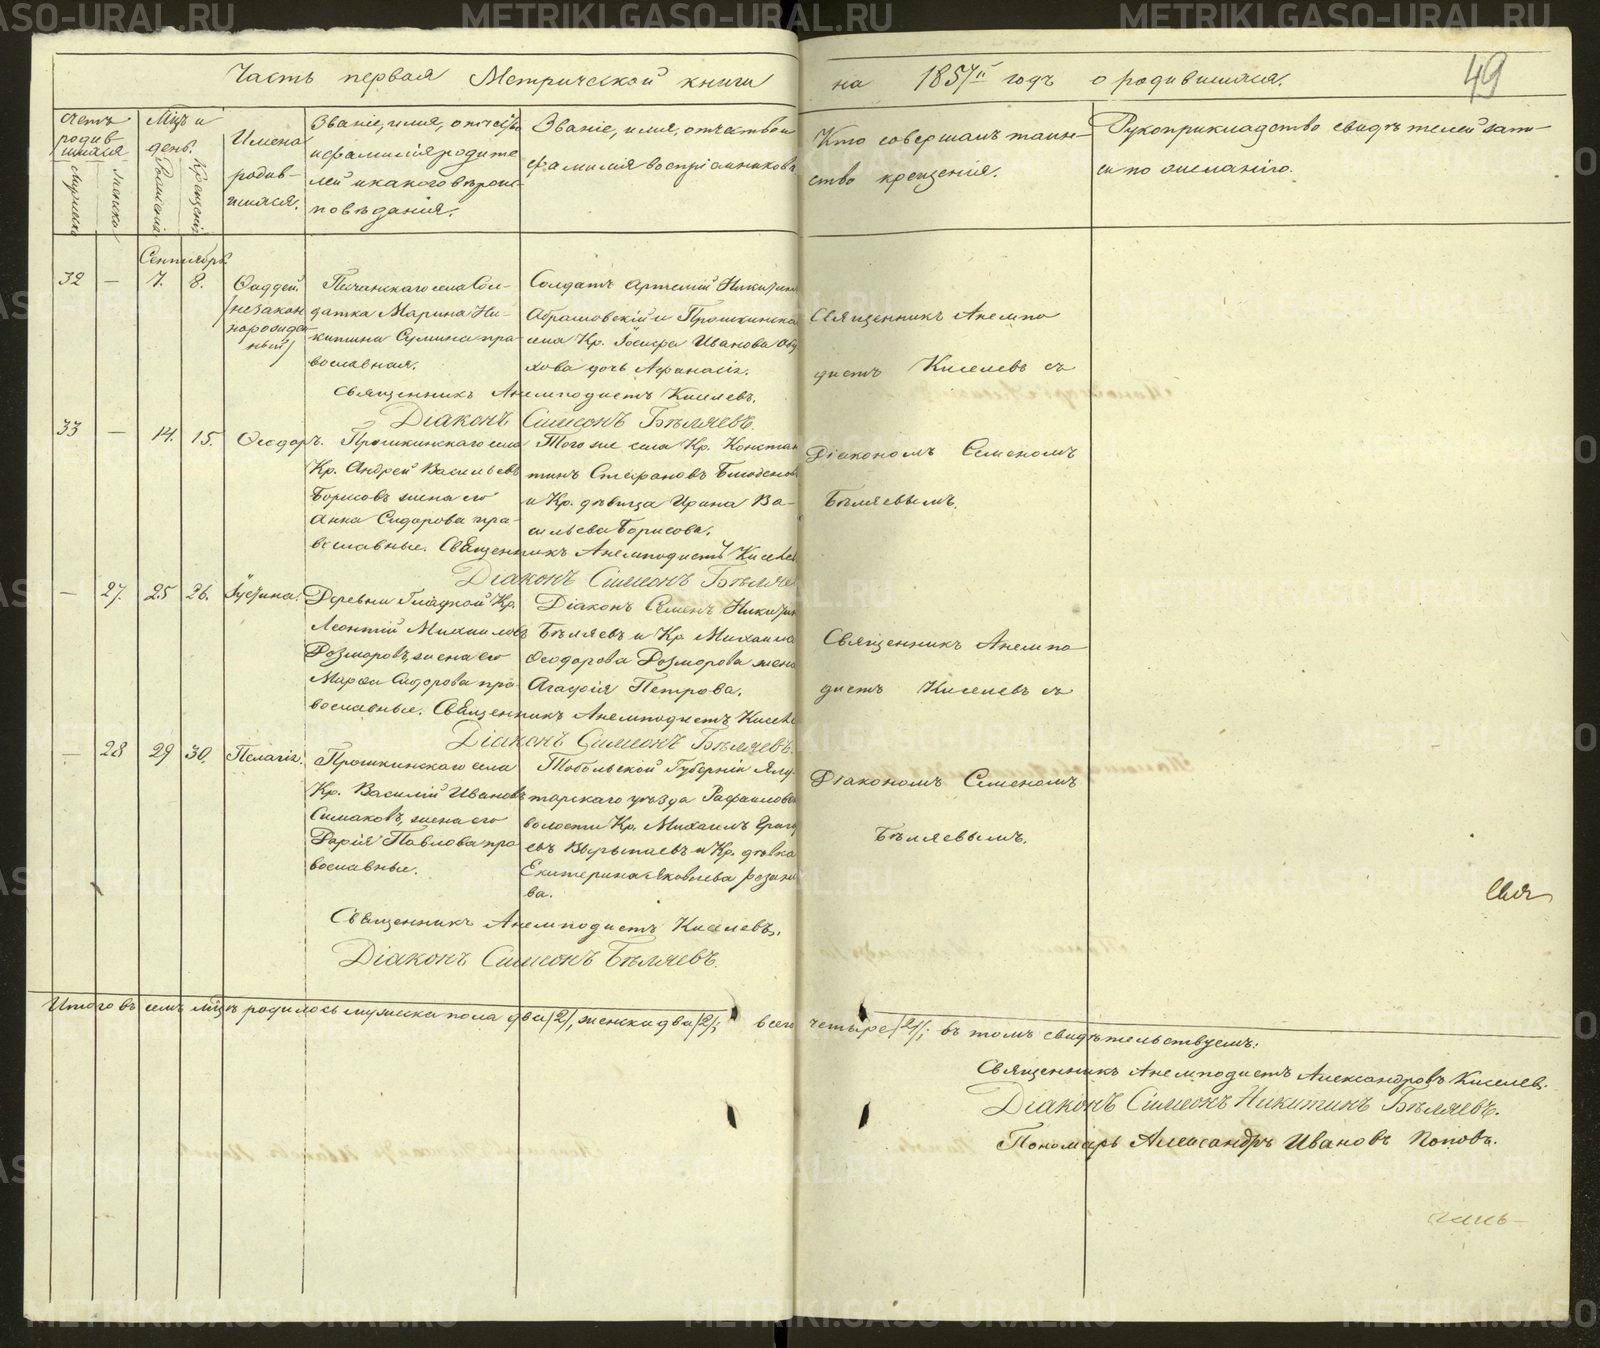 Часть первая Метрической книги на 1857й годъ о родившихся.
49
Счетъ родившихся
Мужеска
Женска
Мцъ и день.
Рожденія
Крещенія
Имена родившихся.
Званіе, имя, отчество и фамилія родителей и какого вѣроисповѣданія.
Званіе, имя, отчество и фамилія воспріемниковъ
Кто совершалъ таинство крещенія.
Рукоприкладство свидѣтелей записи по желанію.
Сентябрь.
32 — 7. 8. Фаддей
/незаконнорожденный/
солдатка Марина Никитина
православная.
Солдатъ Артемій Никитинъ
села Кр. Іосифа Иванова
дочь Афанасія.
Священникъ Анемподистъ Киселевъ съ
Священникъ Анемподистъ Киселевъ.
Діаконъ Симеонъ Бѣляевъ.
33 — 14. 15. Феодоръ.
Прошкинскаго села
Кр. Андрей Васильевъ
Борисовъ жена его
Анна Сидорова православные.
Того же села Кр. Константинъ Стефановъ
и Кр. дѣвица Ирина Васильева Борисова.
Діакономъ Семеномъ
Бѣляевымъ.
Священникъ Анемподистъ Киселев
Діаконъ Симеонъ Бѣляев
— 27. 25 26. Іустина.
Деревни Гладкой Кр.
Леонтій Михаиловъ
Розморовъ, жена его
Марѳа Сидорова православные.
Діаконъ Семенъ Никитин
Бѣляевъ и Кр. Михаила
Феодорова Розморова жена
Агафія Петрова.
Священникъ Анемподистъ Киселевъ съ
Священникъ Анемподистъ Киселев
Діаконъ Симеонъ Бѣляевъ.
— 28 29 30. Пелагія.
Прошкинскаго села
Кр. Василій Ивановъ
Симаковъ, жена его
Дарія Павлова православные.
Тобольской Губерніи Ялуторскаго уѣзда Рафаиловой
волости Кр. Михаилъ
и Кр. дѣвка
Екатерина Яковлева
Діакономъ Семеномъ
Бѣляевымъ.
Священникъ Анемподистъ Киселевъ.
Діаконъ Симеонъ Бѣляевъ.
Итого въ семъ мцѣ родилось мужеска пола два /2/, женска два /2/; всего четыре /4/; въ томъ свидѣтельствуемъ:
Священникъ Анемподистъ Александровъ Киселев.
Діаконъ Симеонъ Никитинъ Бѣляевъ.
Пономарь Александръ Ивановъ Поповъ.
METRIKI.GASO-URAL.RU